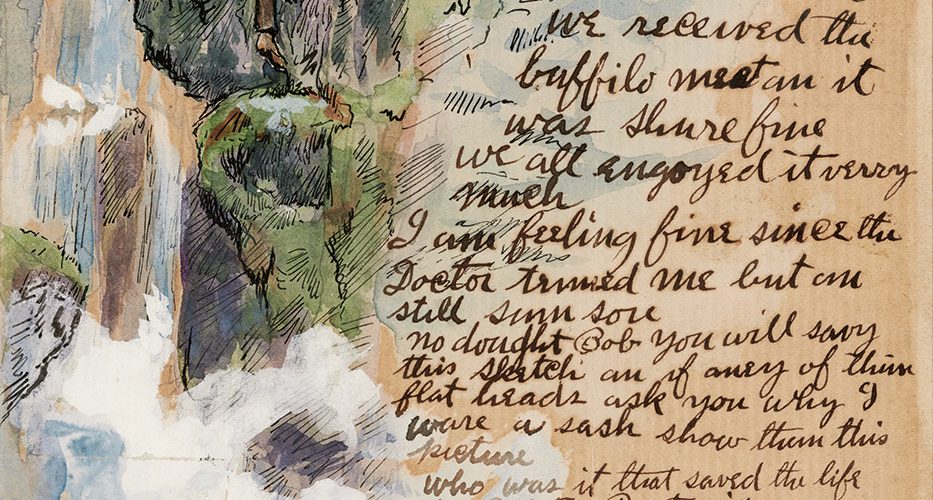 we received the
buffilo meat an it
was shure fine
we all engoyed it verry
much
I am feeling fine since the
Doctor trimed me but am
still sum sore
no dought Bob you will savy
this sketch an if aney of them
flat heads ask you why I
ware a sash show them this
picture
who was it that saved the life